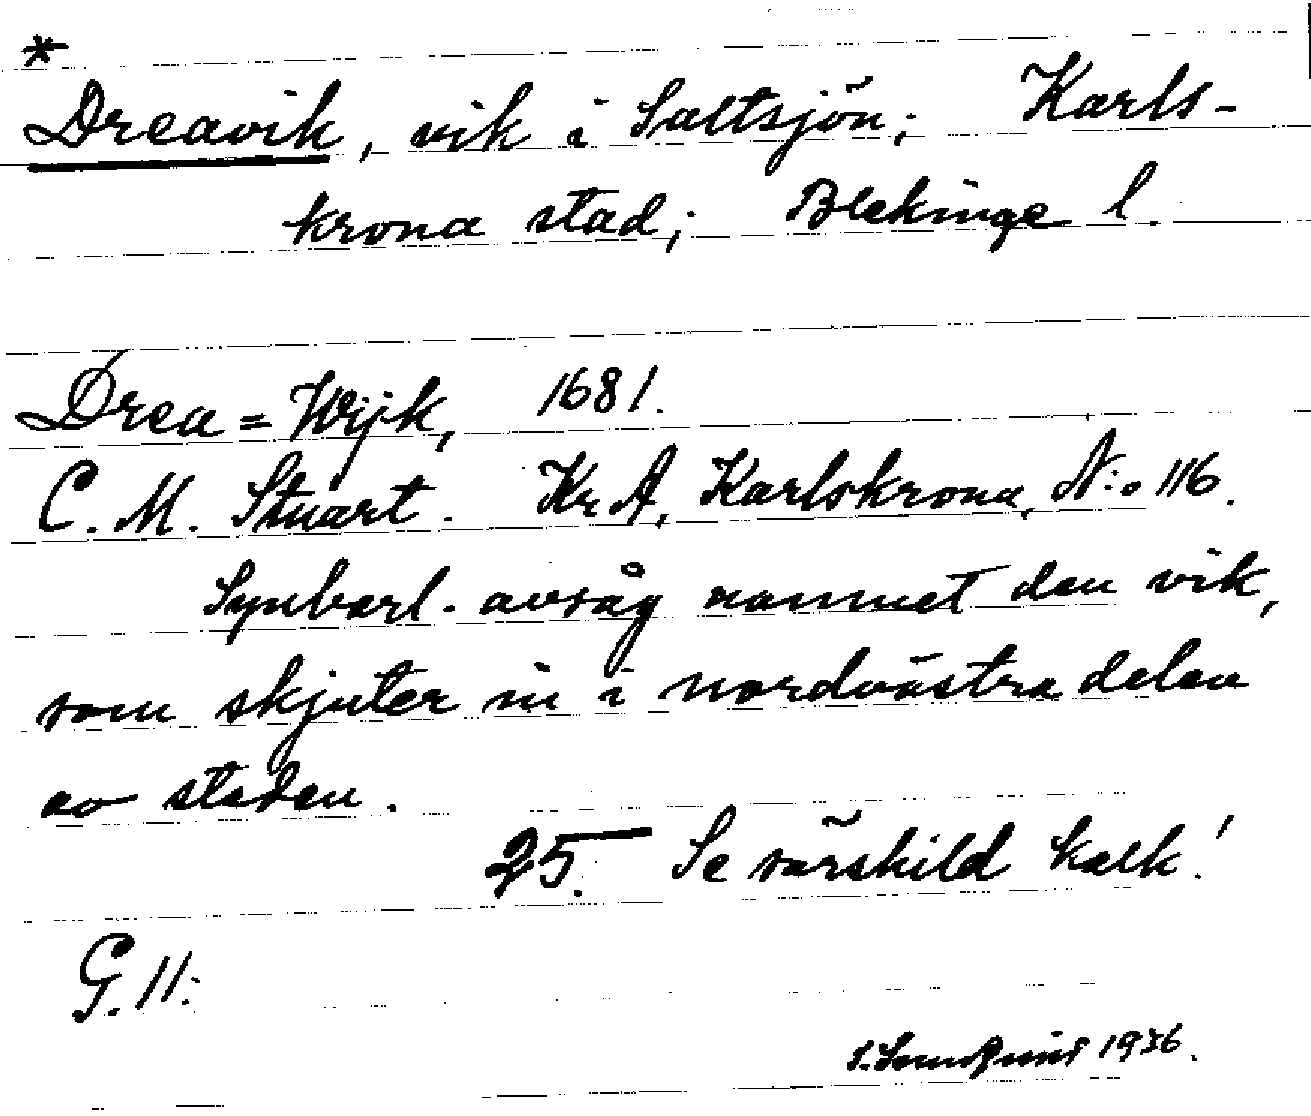 *
Dreavik, vik i Saltsjön; Karls-
krona stad; Blekinge l.
Drea=Wijk, 1681.
C. M. Stuart. Kr A, Karlskrona, N:o 116.
Synbarl. avsåg namnet den vik,
som skjuter in i nordvästra delen
av staden.
25. Se särskild kalk!
G. 11:
S. Sundquist 1936.